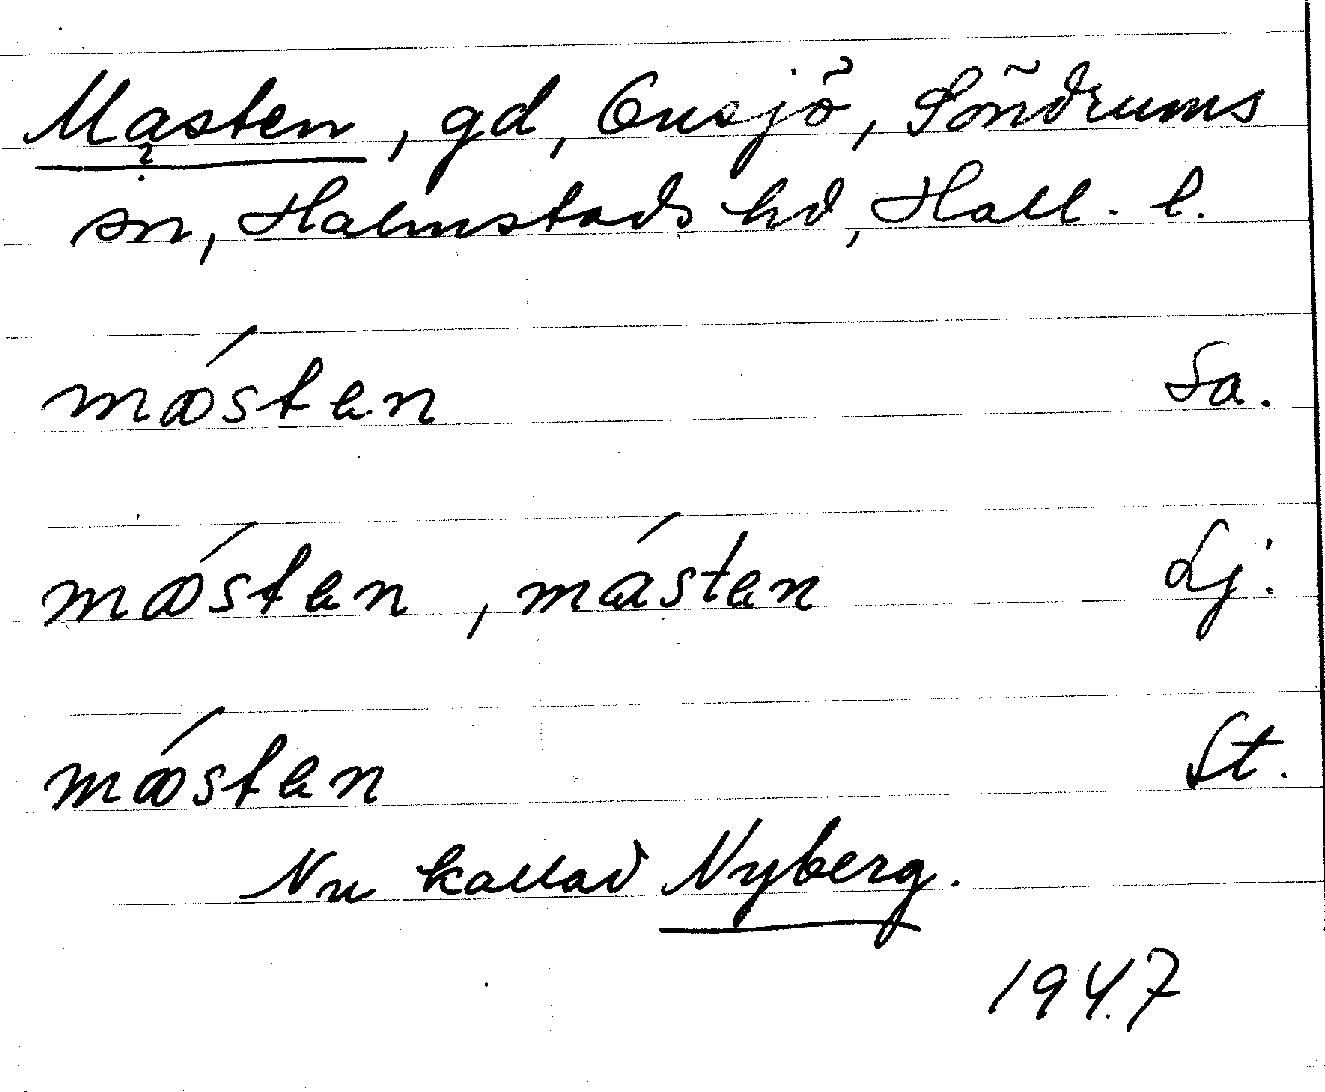 Masten, gd, Ousjö, Söndrums
?
sn, Halmstads hd, Hall. l.
mósten Sa.
mósten, másten Lj.
mósten St.
Nu kallad Nyberg.
1947